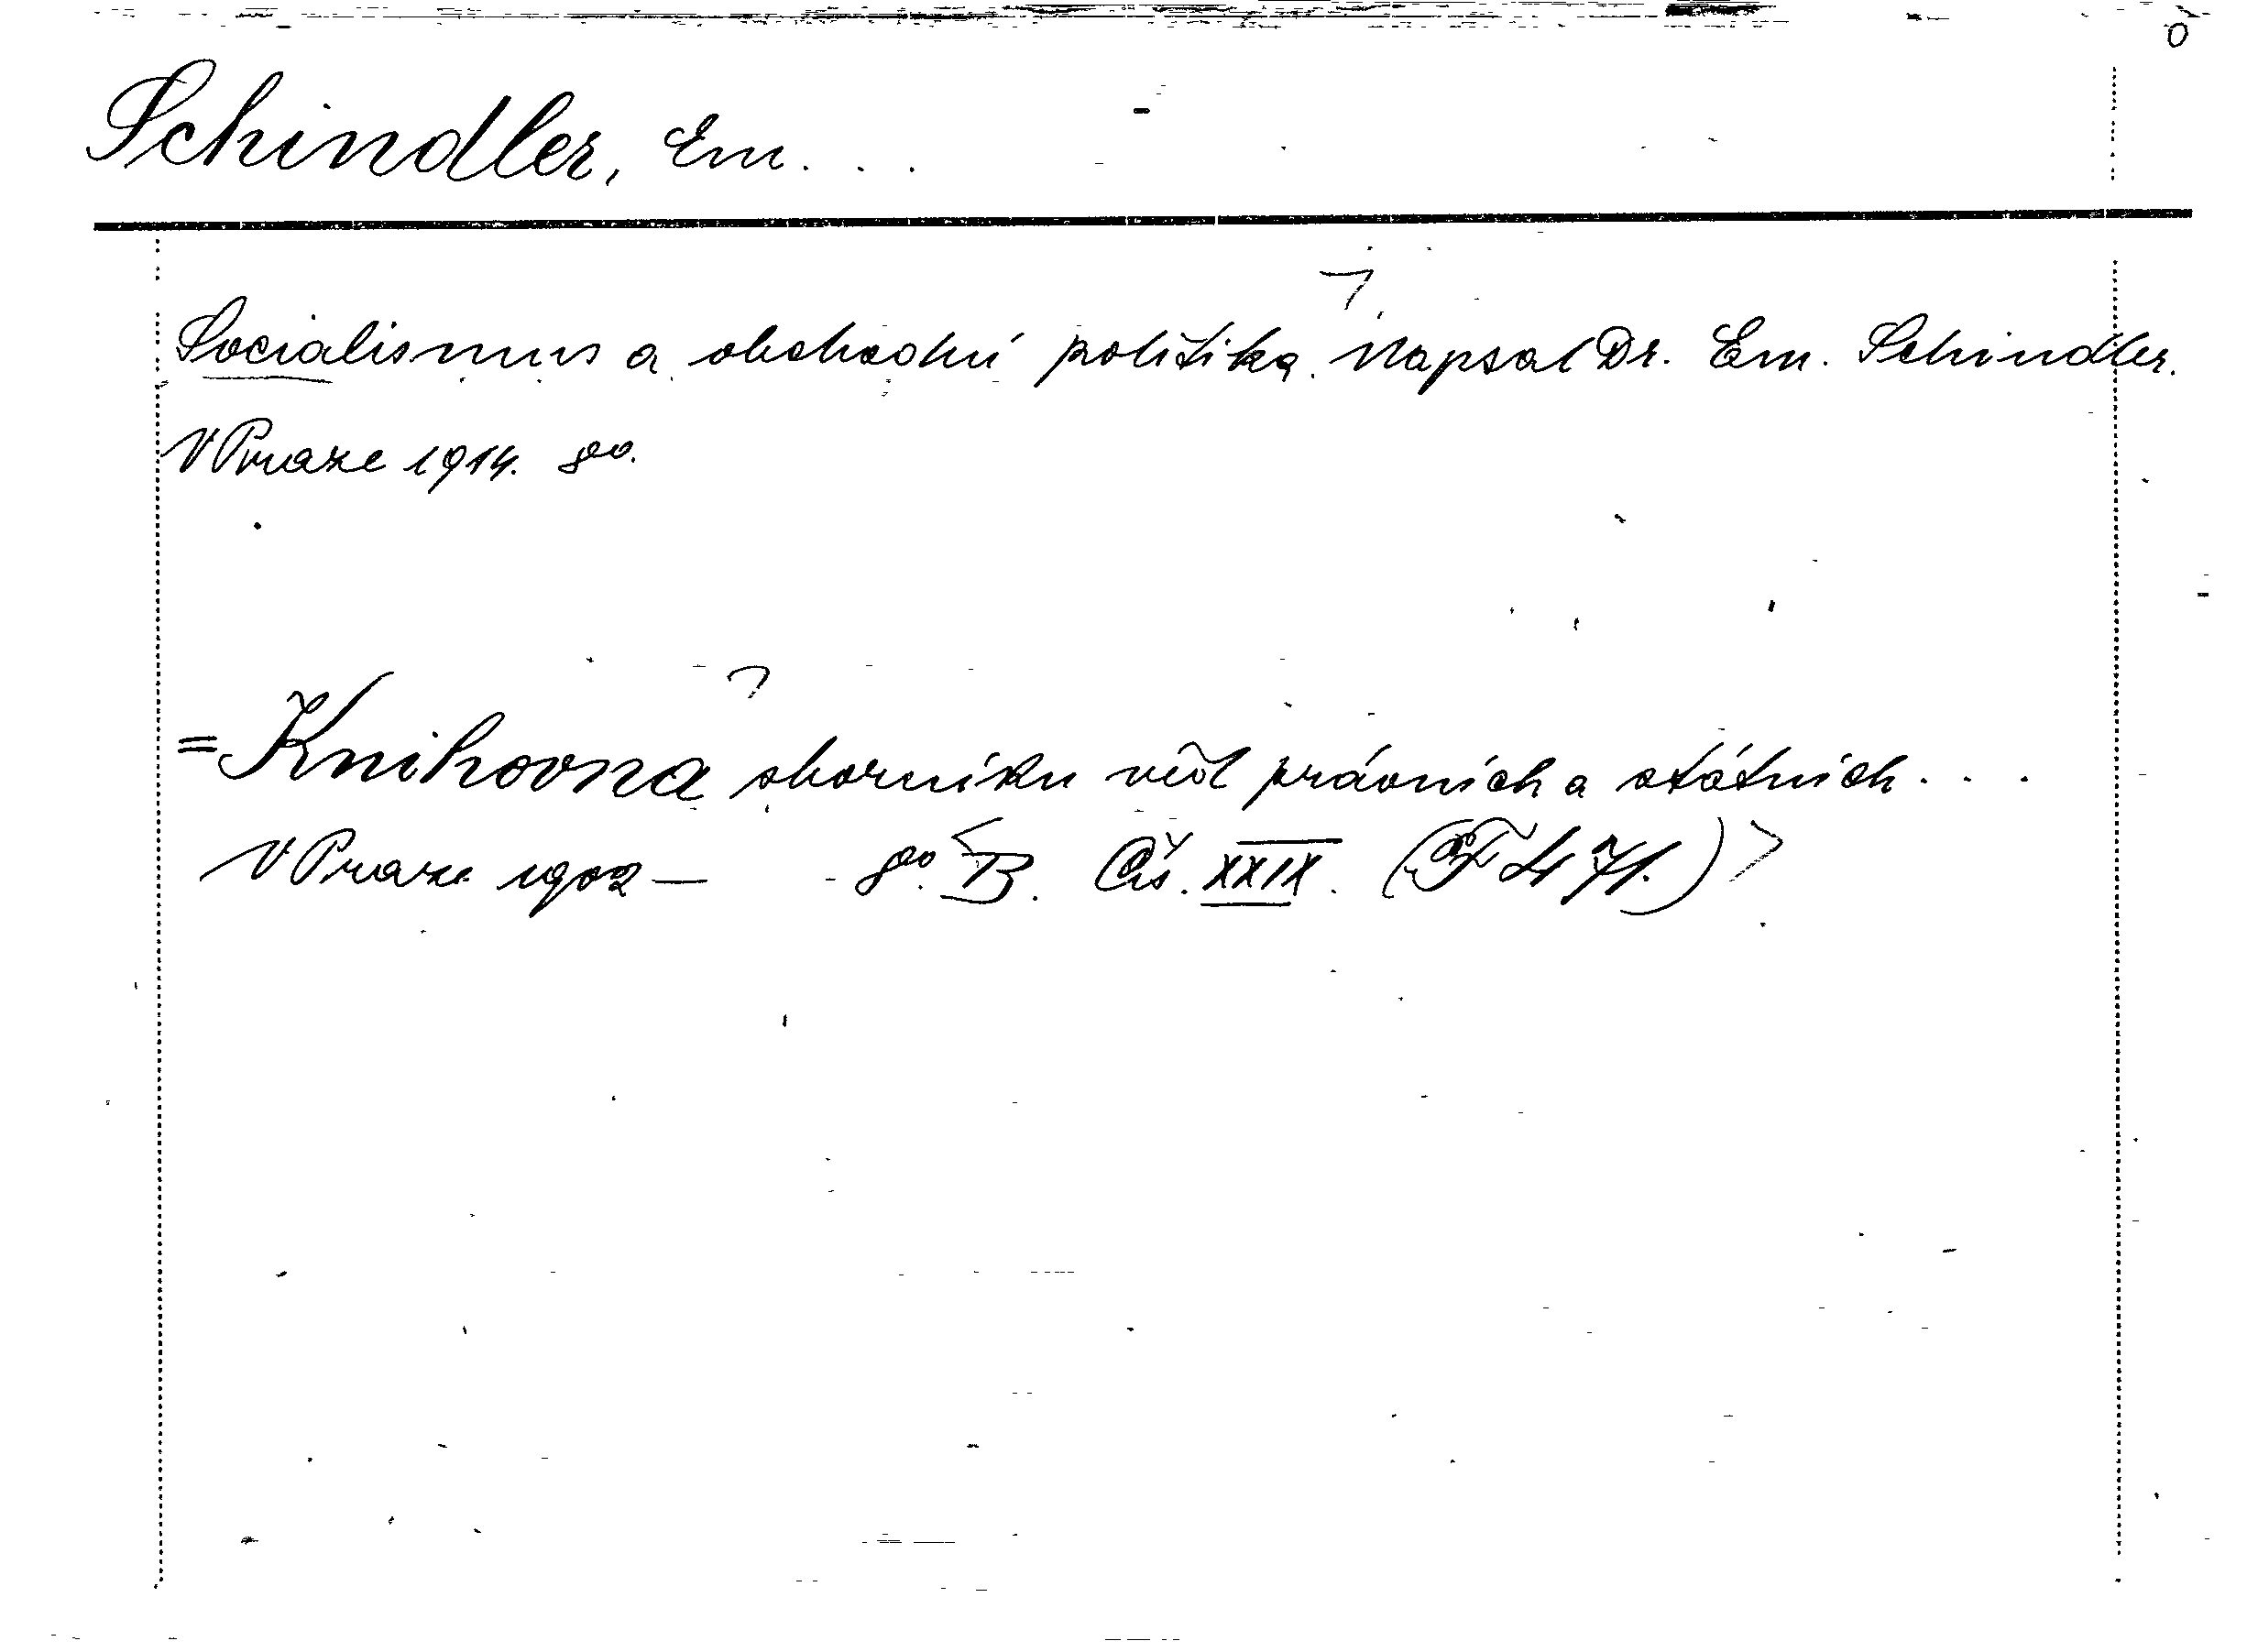 Schindler, Em. . .
Socialismus a obchodní politika. Napsal Dr. Em. Schindler.
V Praze 1914. 8o.
=Knihovna sborníku věd právních a státních . . .
V Praze 1902 — 8o. <B. Čís. XXIX. (F 471.)>